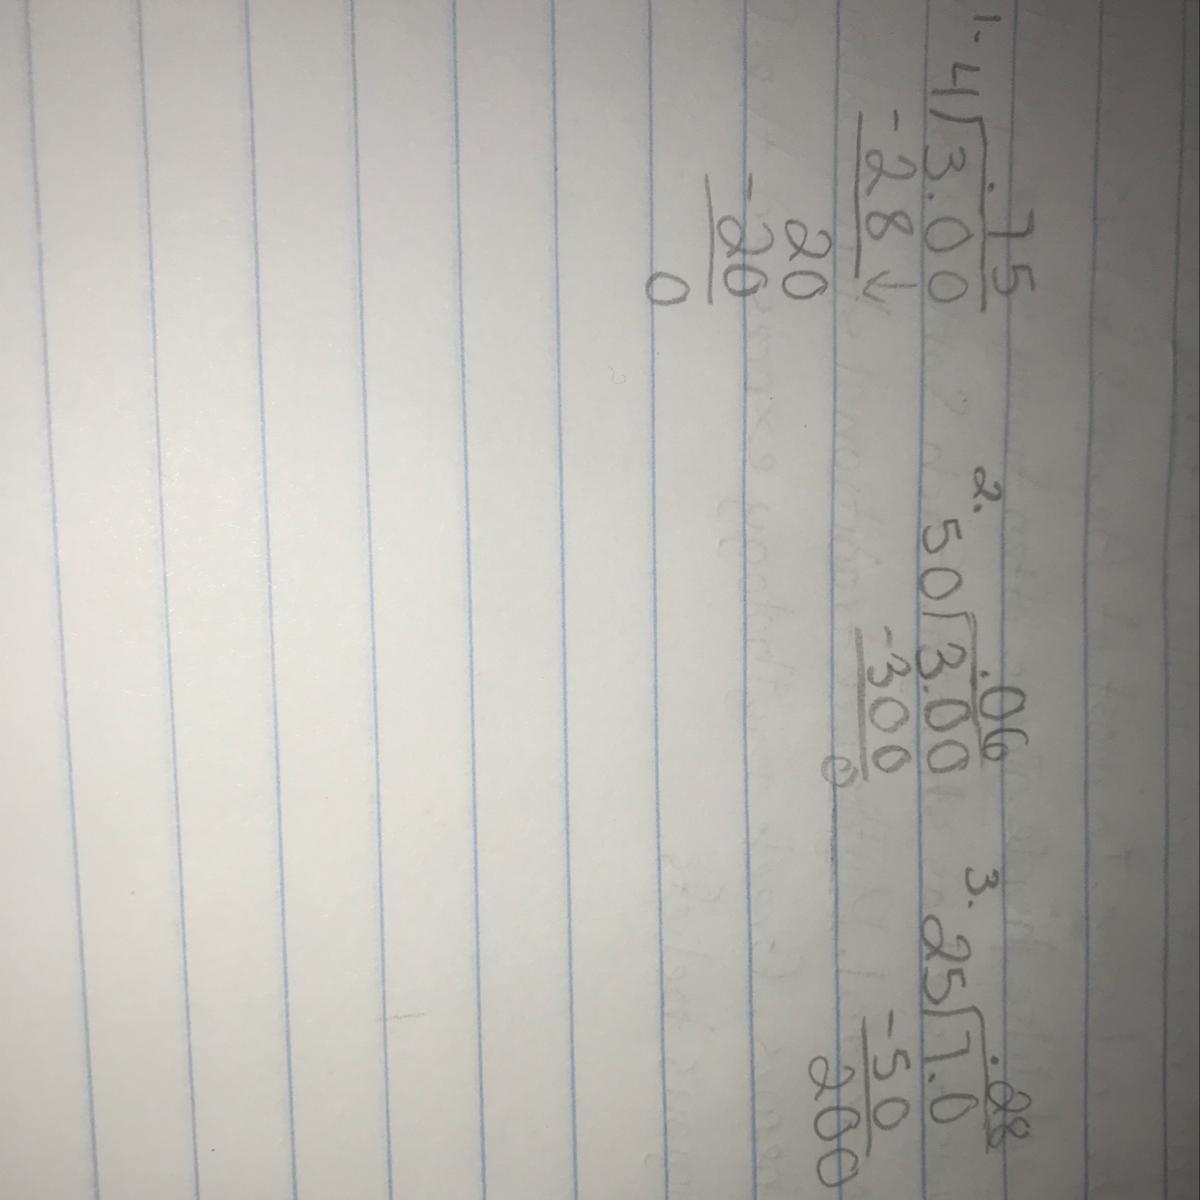 1. .75
4)3.00
-28↓
20
-20
0
2. .06
50)3.00
-300
0
3. .28
25)7.0
-50
200